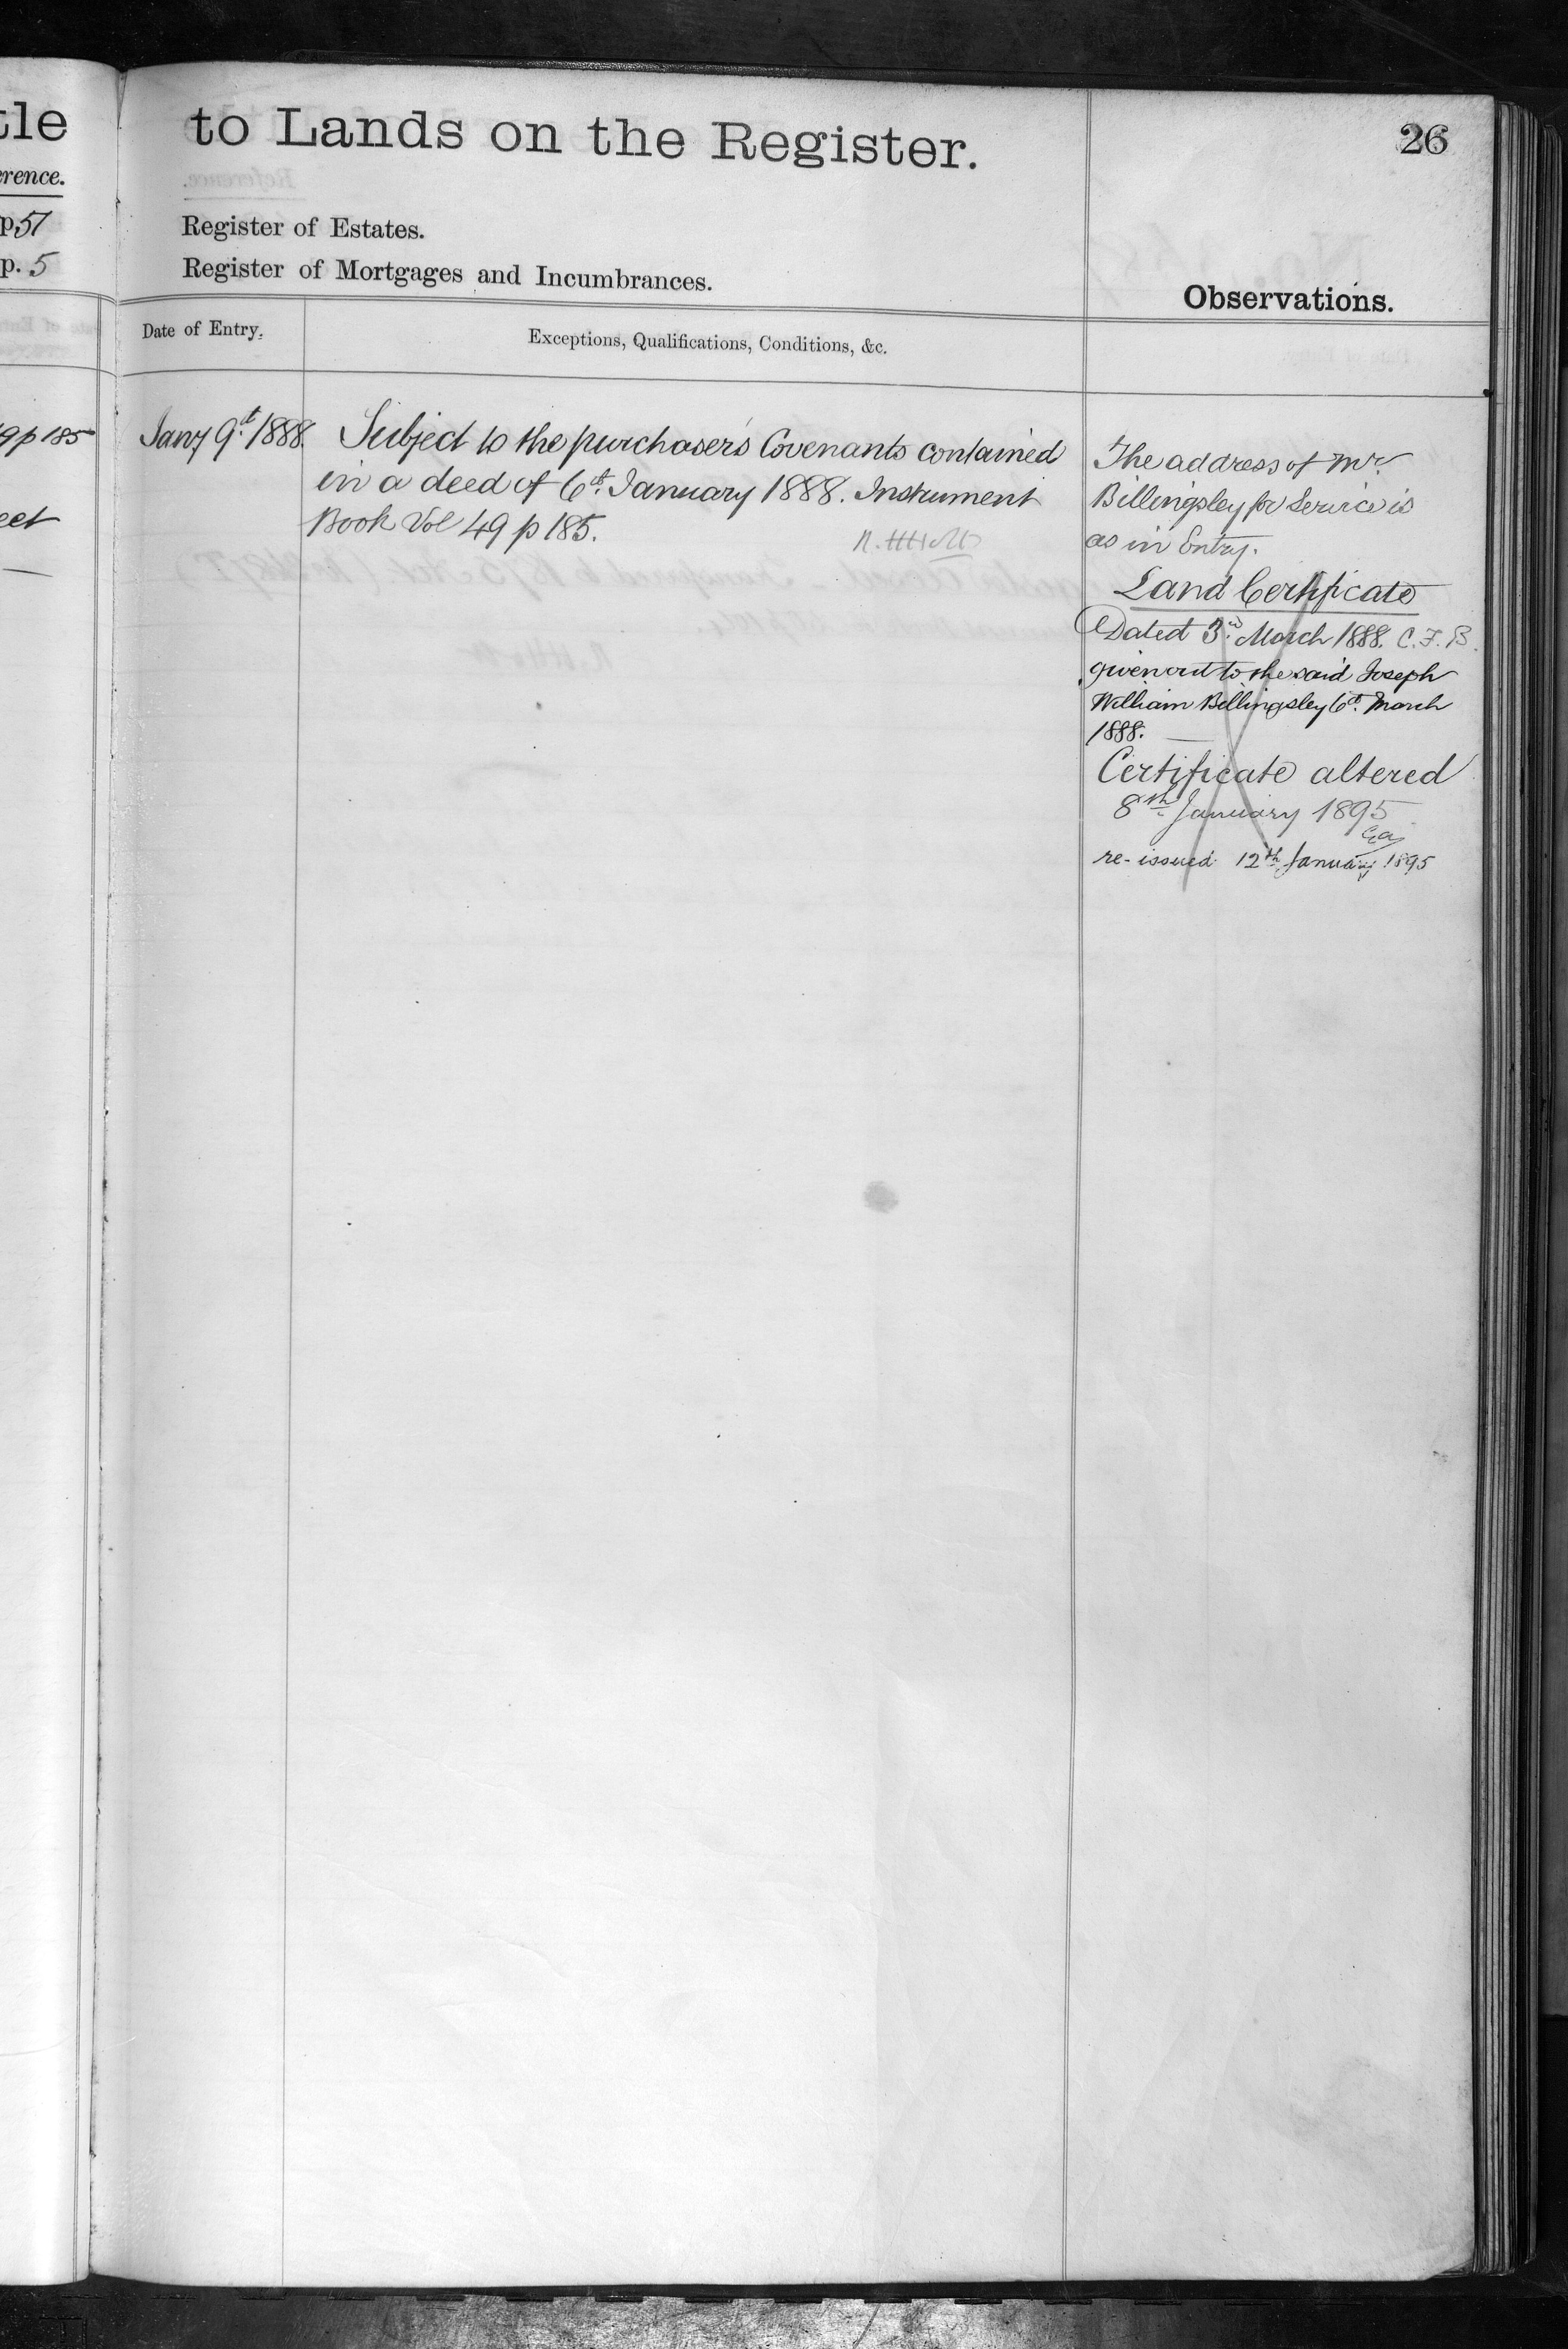 tle
to Lands on the Register.
26
erence.
p. 51
Register of Estates.
p. 5
Register of Mortgages and Incumbrances.
Observations.
Date of Entry.
Exceptions, Qualifications, Conditions, &c.
49 p 185
Jany 9th. 1888.
Subject to the purchaser's Covenants contained
in a deed of 6th. January 1888. Instrument
Book Vol 49 p 185.
eet
The address of Mr.
Billingsley for Service is
as in Entry.
Land Certificate
Dated 3rd. March 1888. C. F. B.
given out to the said Joseph
William Billingsley 6th. March
1888. —
Certificate altered
8th January 1895
re-issued 12th January 1895